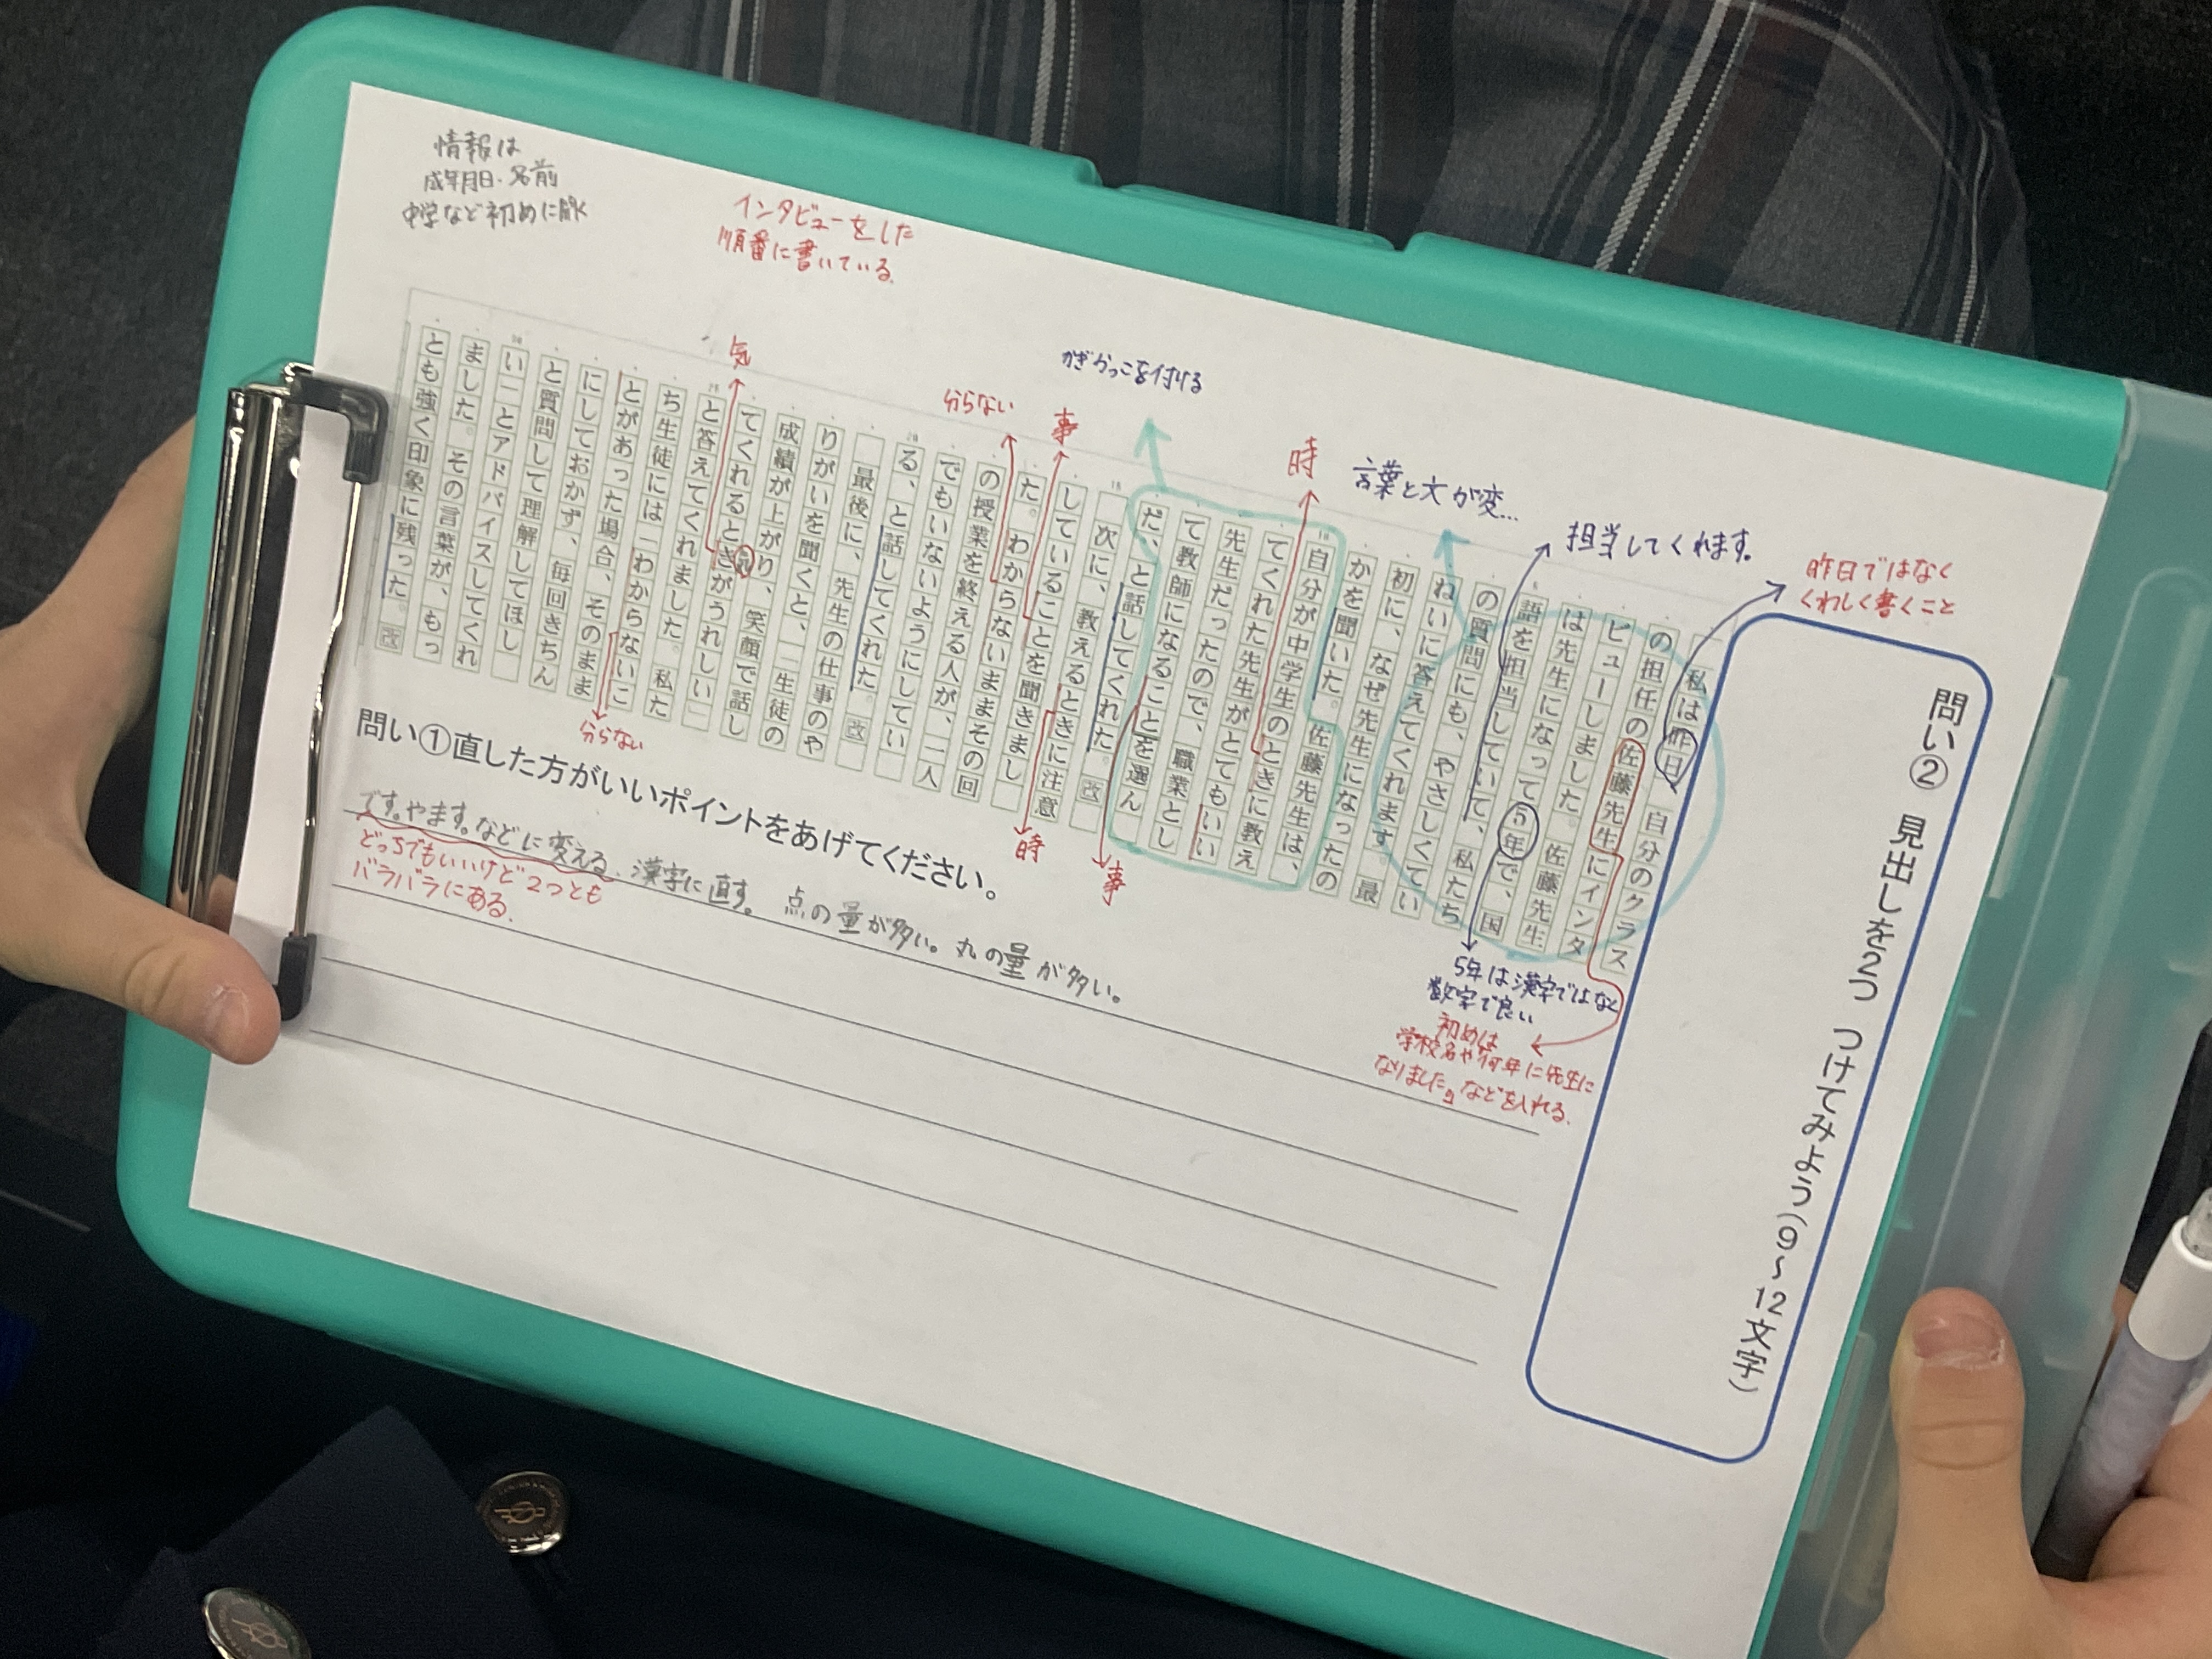 問い② 見出しを2つ つけてみよう(9~12文字)
昨日ではなく
くわしく書くこと
担当してくれます。
言葉と文が変…
時
かぎかっこを付ける
事
分らない
気
インタビューをした
順番に書いている。
情報は
成年月日・名前
中学など初めに聞く
私は昨日、自分のクラス
の担任の佐藤先生にインタ
ビューしました。佐藤先生
は先生になって5年で、国
語を担当していて、私たち
の質問にも、やさしくてい
ねいに答えてくれます。最
初に、なぜ先生になったの
かを聞いた。佐藤先生は、
自分が中学生のときに教え
てくれた先生がとてもいい
先生だったので、職業とし
て教師になることを選ん
だ、と話してくれた。改
次に、教えるときに注意
していることを聞きまし
た。わからないままその回
の授業を終える人が、一人
でもいないようにしてい
る、と話してくれた。改
最後に、先生の仕事のや
りがいを聞くと、「生徒の
成績が上がり、笑顔で話し
てくれるときがうれしい」
と答えてくれました。私た
ち生徒には「わからないこ
とがあった場合、そのまま
にしておかず、毎回きちん
と質問して理解してほし
い」とアドバイスしてくれ
ました。その言葉が、もっ
とも強く印象に残った。改
5年は漢字ではなく
数字で良い
初めは
学校名や何年に先生に
なりました。などを入れる。
事
時
分らない
問い①直した方がいいポイントをあげてください。
です。やます。などに変える。漢字に直す。 点の量が多い。丸の量が多い。
どっちでもいいけど2つとも
バラバラにある。